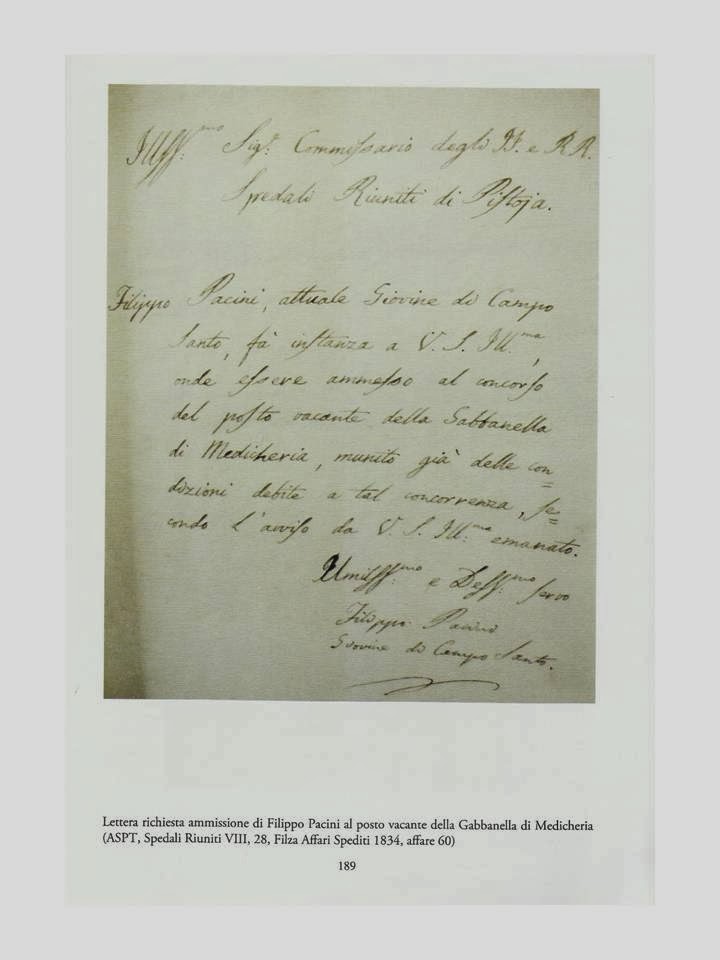 Illss:mo Sigr. Commissario degli II. e RR.
Spedali Riuniti di Pistoja.
Filippo Pacini, attuale Giovine di Campo
Santo, fà instanza a V. S. Ill:ma,
onde essere ammesso al concorso
del posto vacante della Gabbanella
di Medicheria, munito già delle con=
dizioni debite a tal concorrenza, se=
condo l'avviso da V. S. Ill:ma emanato.
Umilss:mo e Devss:mo servo
Filippo Pacini
Giovine di Campo Santo.
Lettera richiesta ammissione di Filippo Pacini al posto vacante della Gabbanella di Medicheria
(ASPT, Spedali Riuniti VIII, 28, Filza Affari Spediti 1834, affare 60)
189